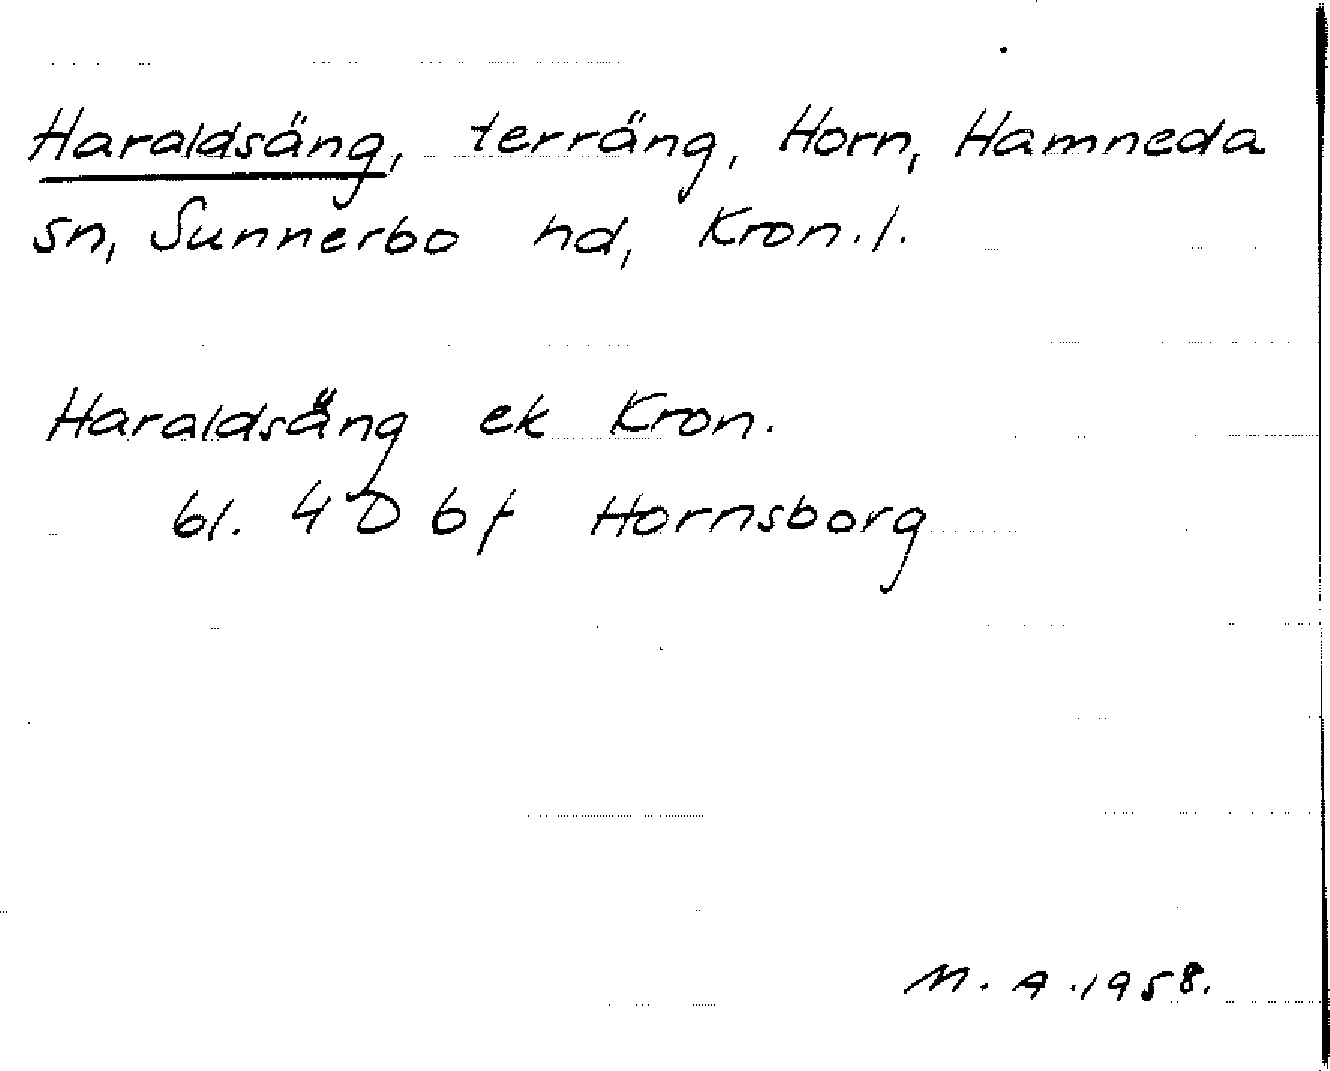 Haraldsäng, terräng, Horn, Hamneda
sn, Sunnerbo hd, Kron.l.
Haraldsäng ek Kron.
bl. 4 D 6 f Hornsborg
M. A. 1958.